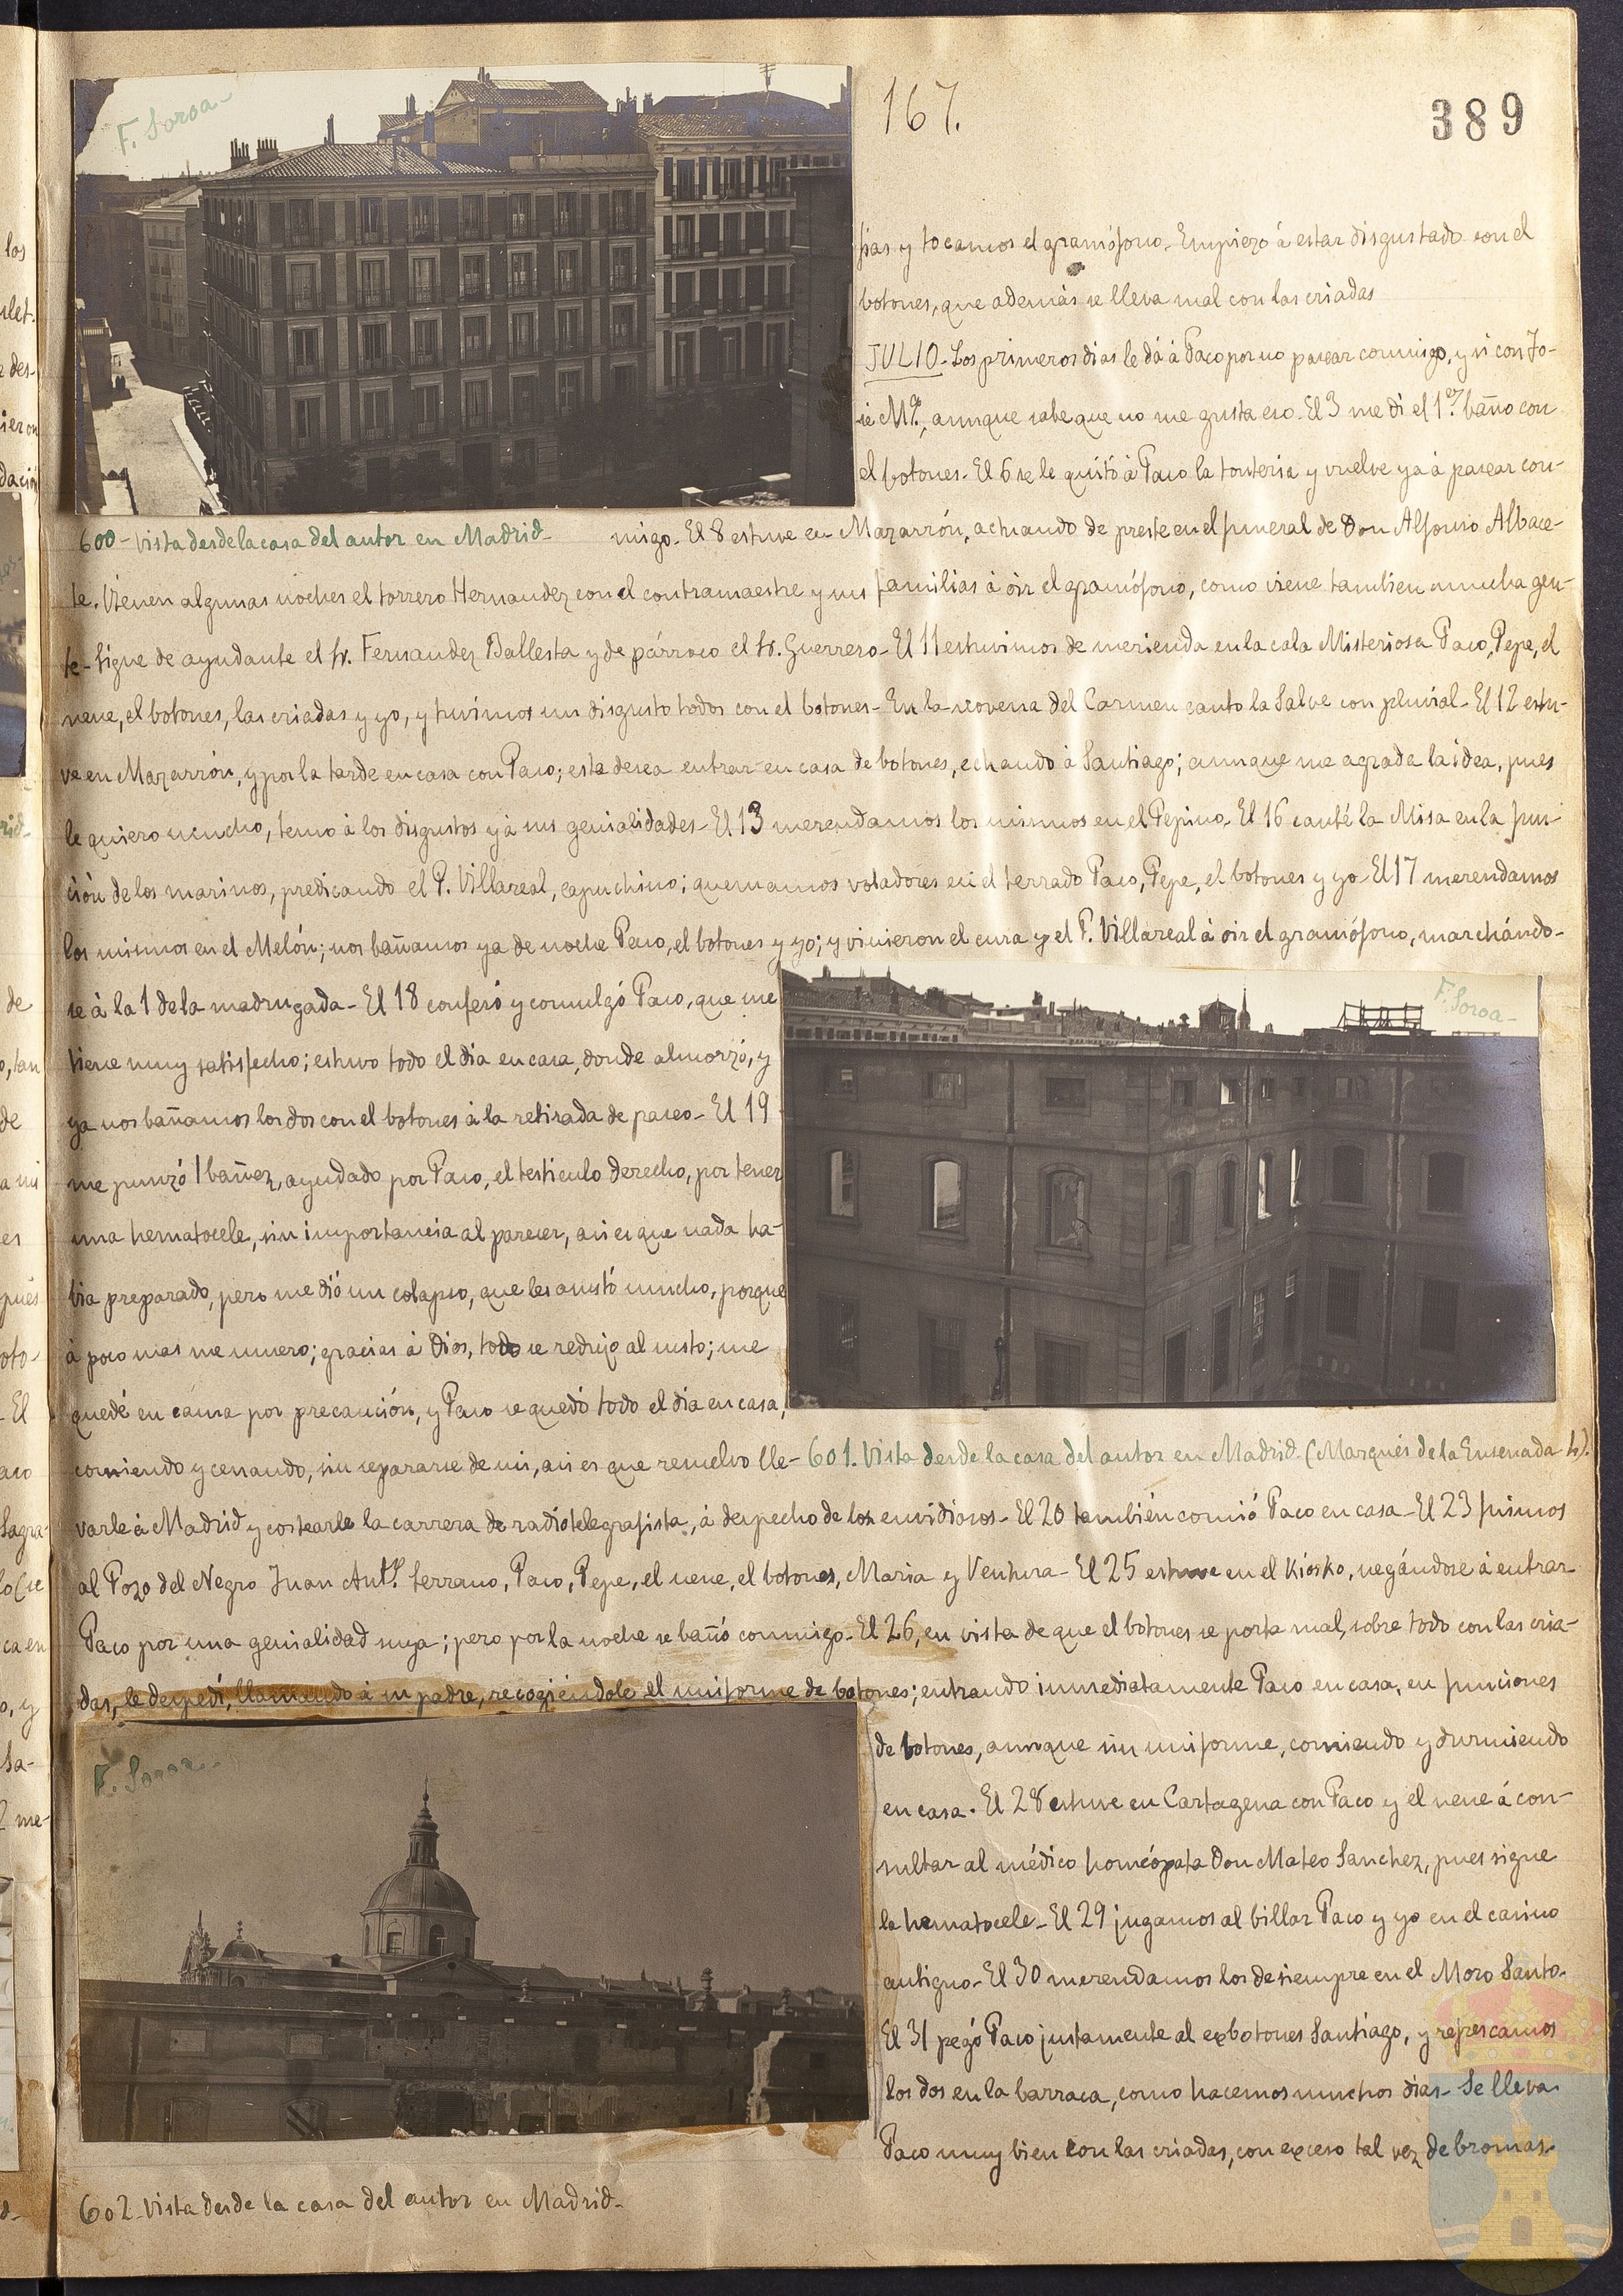 167.
389
F. Soroa-
sias y tocamos el gramófono- Empiezo á estar disgustado con el
botones, que además se lleva mal con las criadas
JULIO- Los primeros dias le dá á Paco por no pasear conmigo, y si con Jo-
sé Mª, aunque sabe que no me gusta eso- El 3 me dí el 1er baño con
el botones- El 6 se le quitó á Paco la tonteria y vuelve ya á pasear con-
600- Vista desde la casa del autor en Madrid-
migo- El 8 estuve en Mazarrón, actuando de preste en el funeral de Don Alfonso Albace-
te. Vienen algunas noches el torrero Hernandez con el contramaestre y sus familias á oir el gramófono, como viene tambien mucha gen-
te- Sigue de ayudante el Sr. Fernandez Ballesta y de párroco el Sr. Guerrero- El 11 estuvimos de merienda en la cala Misteriosa Paco, Pepe, el
nene, el botones, las criadas y yo, y tuvimos un disgusto todos con el botones- En la novena del Carmen canto la Salve con pluvial- El 12 estu-
ve en Mazarrón, y por la tarde en casa con Paco; este desea entrar en casa de botones, echando á Santiago; aunque me agrada la idea, pues
le quiero mucho, temo á los disgustos y á sus genialidades- El 13 merendamos los mismos en el Pepino- El 16 canté la Misa en la fun-
ción de los marinos, predicando el P. Villareal, capuchino; quemamos voladores en el terrado Paco, Pepe, el botones y yo- El 17 merendamos
los mismos en el Melón; nos bañamos ya de noche Paco, el botones y yo; y vinieron el cura y el P. Villareal á oir el gramófono, marchándo-
se á la 1 de la madrugada- El 18 confesó y comulgó Paco, que me
F. Soroa-
tiene muy satisfecho; estuvo todo el dia en casa, donde almorzó, y
ya nos bañamos los dos con el botones á la retirada de paseo- El 19
me punzó Ibañez, ayudado por Paco, el testiculo derecho, por tener
una hematocele, sin importancia al parecer, asi es que nada ha-
bia preparado, pero me dió un colapso, que les asustó mucho, porque
á poco mas me muero; gracias á Dios, todo se redujo al susto; me
quedé en cama por precaución, y Paco se quedó todo el dia en casa,
comiendo y cenando, sin separarse de mi, asi es que resuelvo lle-
601. Vista desde la casa del autor en Madrid- (Marqués de la Ensenada 4).
varle á Madrid y costearle la carrera de radiotelegrafista, á despecho de los envidiosos- El 20 también comió Paco en casa- El 23 fuimos
al Pozo del Negro Juan Antº. Serrano, Paco, Pepe, el nene, el botones, Maria y Ventura- El 25 estuve en el Kiosko, negándose á entrar
Paco por una genialidad suya; pero por la noche se bañó conmigo- El 26, en vista de que el botones se porta mal, sobre todo con las cria-
das, le despedí, llamando á su padre, recogiéndole el uniforme de botones; entrando inmediatamente Paco en casa, en funciones
F. Soroa-
de botones, aunque sin uniforme, comiendo y durmiendo
en casa. El 28 estuve en Cartagena con Paco y el nene á con-
sultar al médico homeópata Don Mateo Sanchez, pues sigue
la hematocele- El 29 jugamos al billar Paco y yo en el casino
antiguo- El 30 merendamos los de siempre en el Moro Santo-
El 31 pegó Paco justamente al exbotones Santiago, y refrescamos
los dos en la barraca, como hacemos muchos dias- Se lleva
Paco muy bien con las criadas, con exceso tal vez de bromas-
602- Vista desde la casa del autor en Madrid-